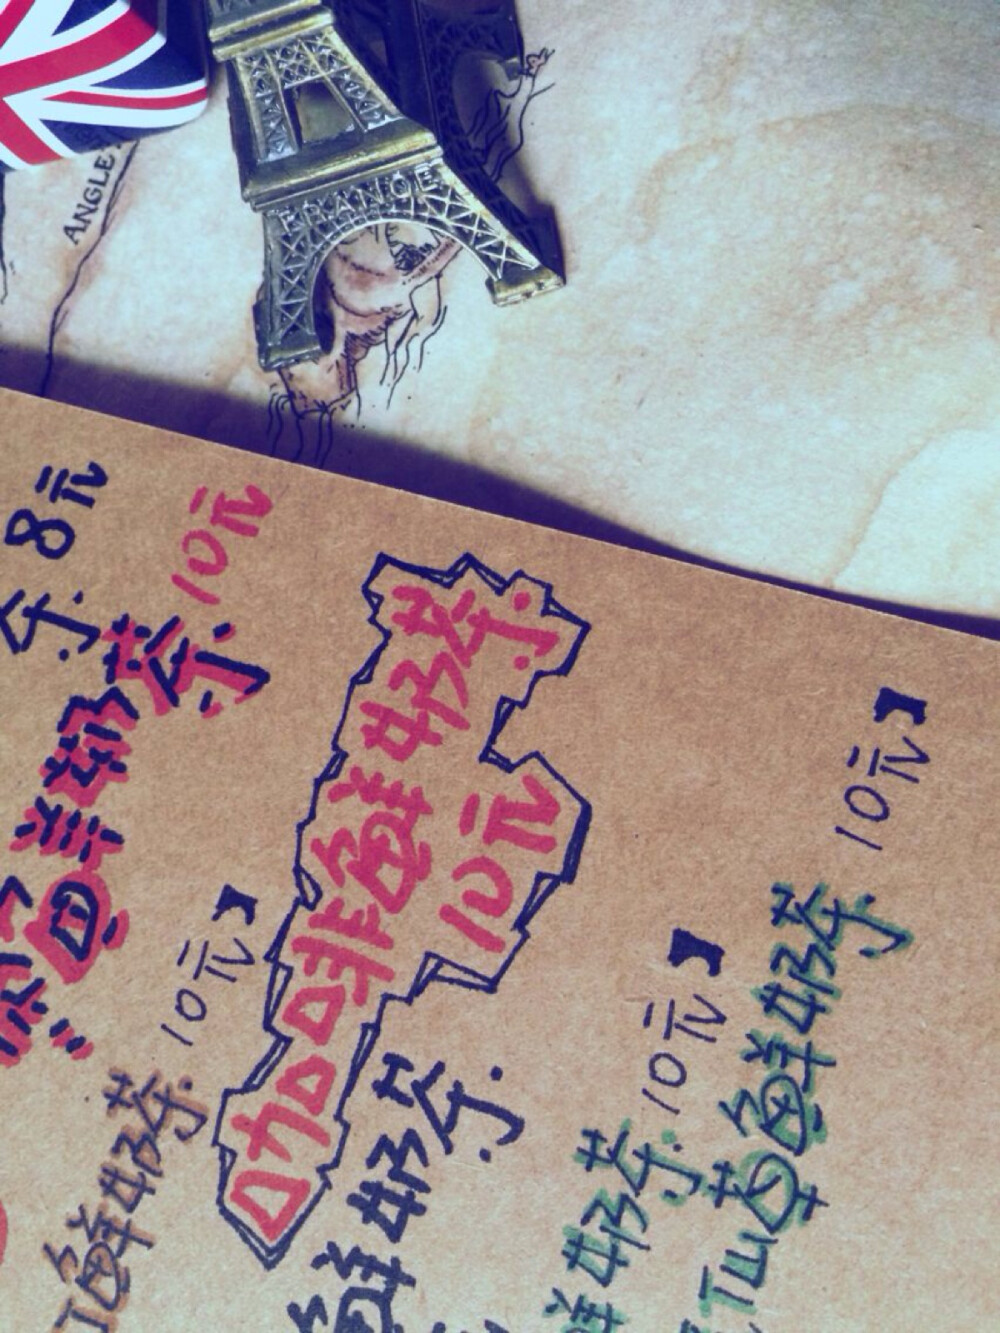 FRANCE
茶. 8元
鲜奶茶. 10元
鲜奶茶. 10元】
咖啡鲜奶茶.
10元
鲜奶茶.
鲜奶茶. 10元】
鲜奶茶. 10元】